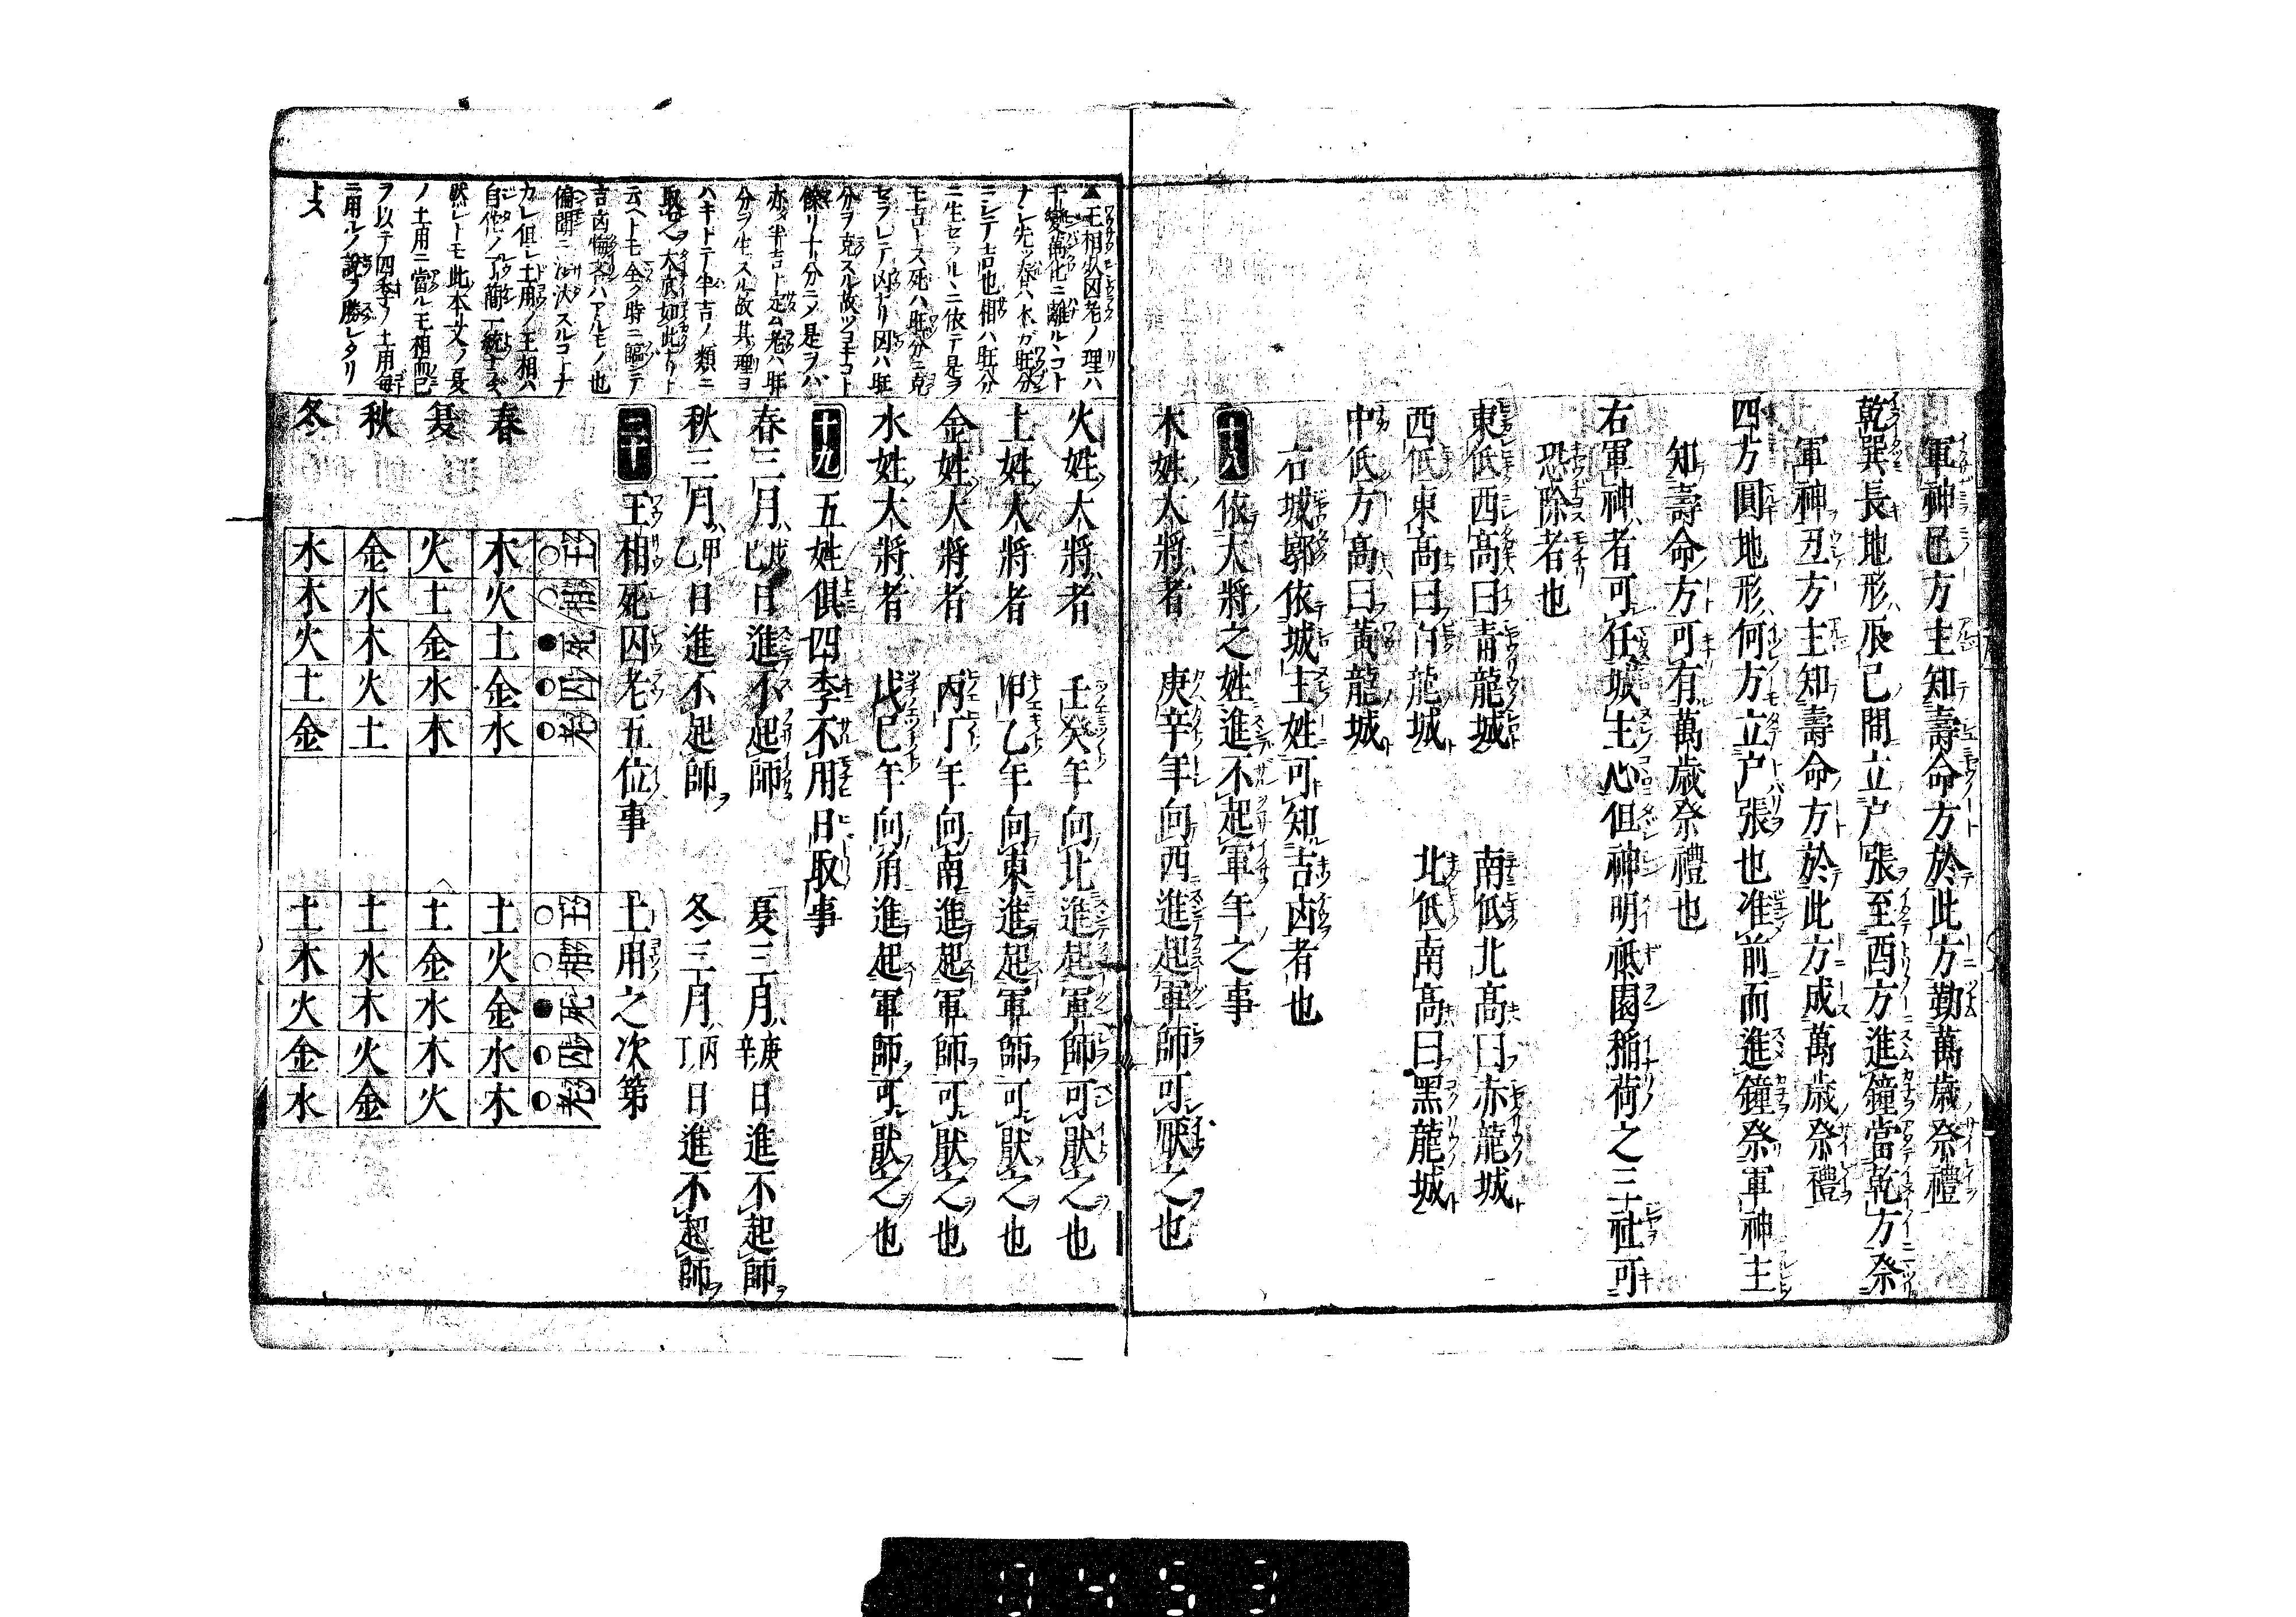 軍神巳方主知壽命方於此方勤萬歳祭禮
乾巽長地形辰巳間立户張至酉方進鐘當乾方祭
軍神丑方主知壽命方於此方成萬歳祭禮
四方圓地形何方立户張也准前而進鐘祭軍神主
知壽命方可有萬歳祭禮也
右軍神者可任城主心但神明祇園稲荷之三社可
恐除者也
東低西髙曰青龍城 南低北髙曰赤龍城
西低東髙曰白龍城 北低南髙曰黒龍城
中低方髙曰黄龍城
右城墎依城主姓可知吉凶者也
十八 依大將之姓進不起軍年之事
木姓大將者 庚辛年向西進起軍師可厭之也
火姓大將者 壬癸年向北進起軍師可厭之也
土姓大將者 甲乙年向東進起軍師可厭之也
金姓大將者 丙丁年向南進起軍師可厭之也
水姓大將者 戊巳年向角進起軍師可厭之也
十九 五姓俱四季不用日取事
春三月戊巳日進不起師 夏三月庚辛日進不起師
秋三月甲乙日進不起師 冬三月丙丁日進不起師
二十 王相死囚老五位事 土用之次第
王 相 死 囚 老 王 相 死 囚 老
○ ○ ● ◐ ◐ ○ ○ ● ◐ ◐
春 木 火 土 金 水 土 火 金 水 木
夏 火 土 金 水 木 土 金 水 木 火
秋 金 水 木 火 土 土 水 木 火 金
冬 水 木 火 土 金 土 木 火 金 水
▲王相死囚老ノ理ハ
千變萬化ニ離ルヽコト
ナシ先ツ春ハ木ガ旺分
ニシテ吉也相ハ旺分
ニ生セラルヽニ依テ是ヲ
モ吉トス死ハ旺分ニ克
セラレテ凶ナリ囚ハ旺
分ヲ克スル故ツヨキコト
餘リ十分ニメ是ヲバ
亦タ半吉ト定ム老ハ旺
分ヲ生スル故其ノ理ヨ
ハキトテ半吉ノ類ニ
取之大底如此ナリト
云ヘトモ全ク時ニ臨シテ
吉凶悔吝ハアルモノ也
偏閇ニ沙汰スルコトナ
カレ但シ土用ノ王相ハ
自他ノ了簡一統ナラズ
然レトモ此本文ノ夏
ノ土用ニ當ル王相而已
ヲ以テ四季ノ土用毎
ニ用ルノ説ヲ勝レタリ
トス